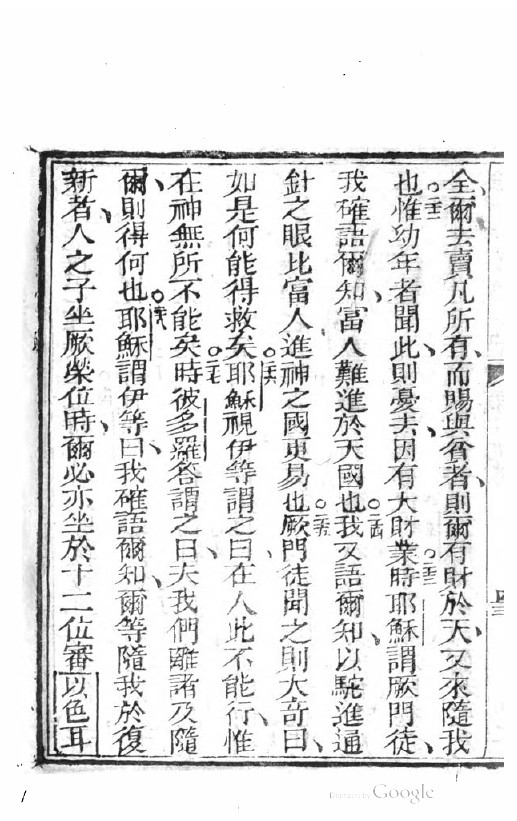 全爾去賣凡所有、而賜與貧者、則爾有財於天、又來隨我
也○二十二惟幼年者聞此、則憂去、因有大財業時○二十三耶穌謂厥門徒、
我確語爾知、富人難進於天國也○二十四我又語爾知、以駝進通
針之眼比富人進神之國更易也○二十五厥門徒聞之則大奇曰、
如是何能得救矣○二十六耶穌視伊等謂之曰、在人此不能行、惟
在神無所不能矣○二十七時彼多羅答謂之曰、夫我們離諸及隨
爾、則得何也○二十八耶穌謂伊等曰、我確語爾知、爾等隨我於復
新者、人之子坐厥榮位時、爾必亦坐於十二位審以色耳
Digitized by Google